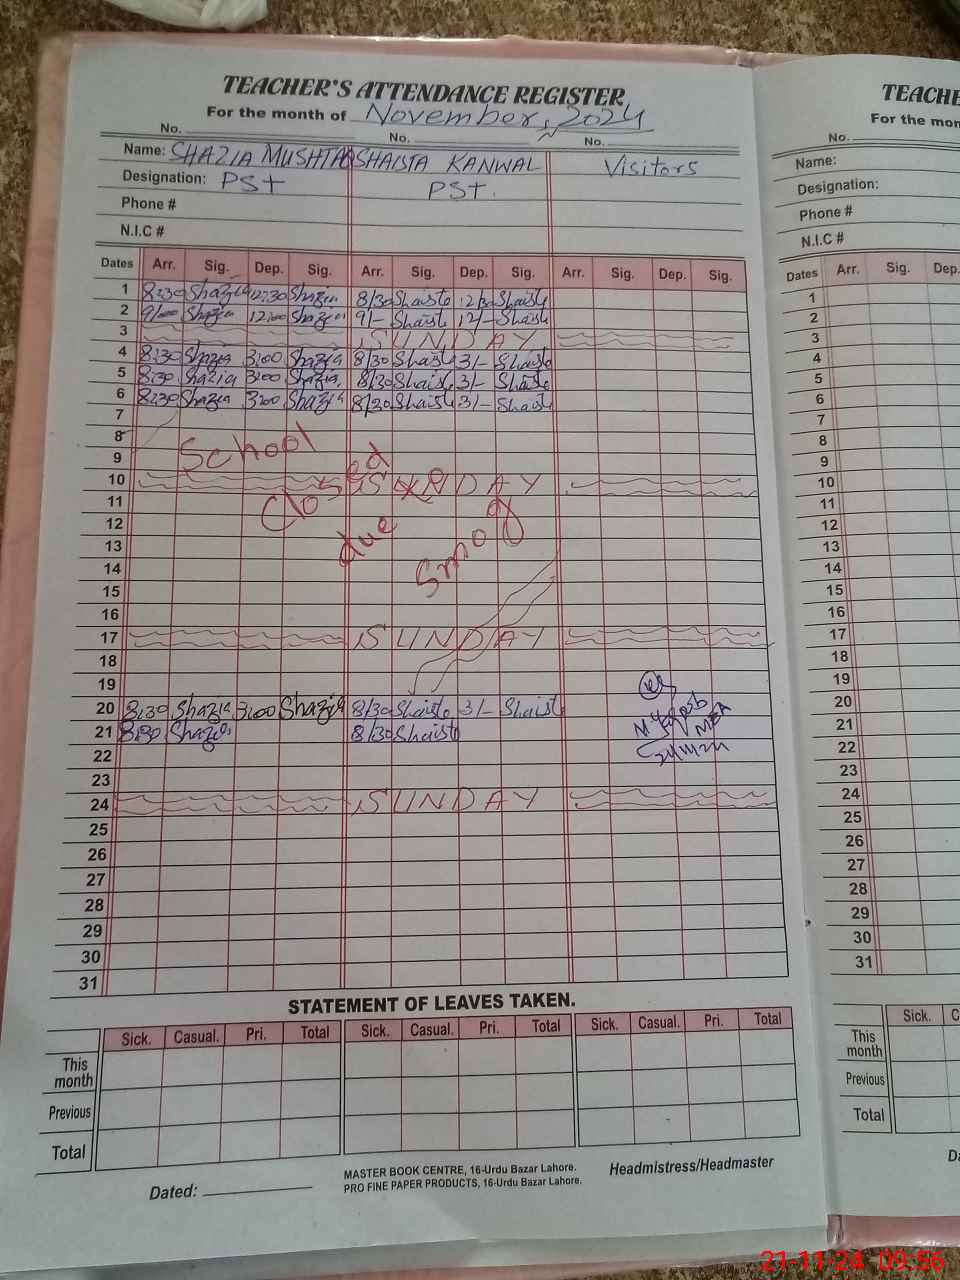 TEACHER'S ATTENDANCE REGISTER
For the month of November, 2024
No. No. No.
Name: SHAZIA MUSHTAQ SHAISTA KANWAL Visitors
Designation: PST PST.
Phone #
N.I.C #
Dates Arr. Sig. Dep. Sig. Arr. Sig. Dep. Sig. Arr. Sig. Dep. Sig.
1 8:30 Shazia 12:30 Shazia 8/30 Shaista 12/30 Shaista
2 9/00 Shazia 12:00 Shazia 9/- Shaista 12/- Shaista
3 SUNDAY
4 8:30 Shazia 3:00 Shazia 8/30 Shaista 3/- Shaista
5 8:30 Shazia 3:00 Shazia 8/30 Shaista 3/- Shaista
6 8:30 Shazia 3:00 Shazia 8/30 Shaista 3/- Shaista
7
8
9 School
10 Closed SUNDAY
11
12 due
13
14 Smog
15
16
17 SUNDAY
18
19
20 8:30 Shazia 3:00 Shazia 8/30 Shaista 3/- Shaista
21 8:30 Shazia 8/30 Shaista MEA
22 21/11/24
23
24 SUNDAY
25
26
27
28
29
30
31
STATEMENT OF LEAVES TAKEN.
Sick. Casual. Pri. Total Sick. Casual. Pri. Total Sick. Casual. Pri. Total
This month
Previous
Total
Dated:
MASTER BOOK CENTRE, 16-Urdu Bazar Lahore.
PRO FINE PAPER PRODUCTS, 16-Urdu Bazar Lahore.
Headmistress/Headmaster
TEACHE
For the mon
No.
Name:
Designation:
Phone #
N.I.C #
Dates Arr. Sig. Dep.
1
2
3
4
5
6
7
8
9
10
11
12
13
14
15
16
17
18
19
20
21
22
23
24
25
26
27
28
29
30
31
Sick. C
This month
Previous
Total
Da
21-11-24 09:56